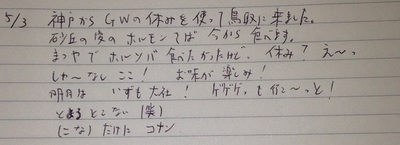 5/3 神戸からGWの休みを使って鳥取に来ました。
砂丘の後のホルモンそば 今から食べます。
まつやで ホルソバ 食べたかったけど、休み? え〜、
しゃーなし ここ! お味が楽しみ!
明日は いずも大社! ゲゲゲ、も行こ〜っと!
とるとこない (笑)
(こな) だけに コナン